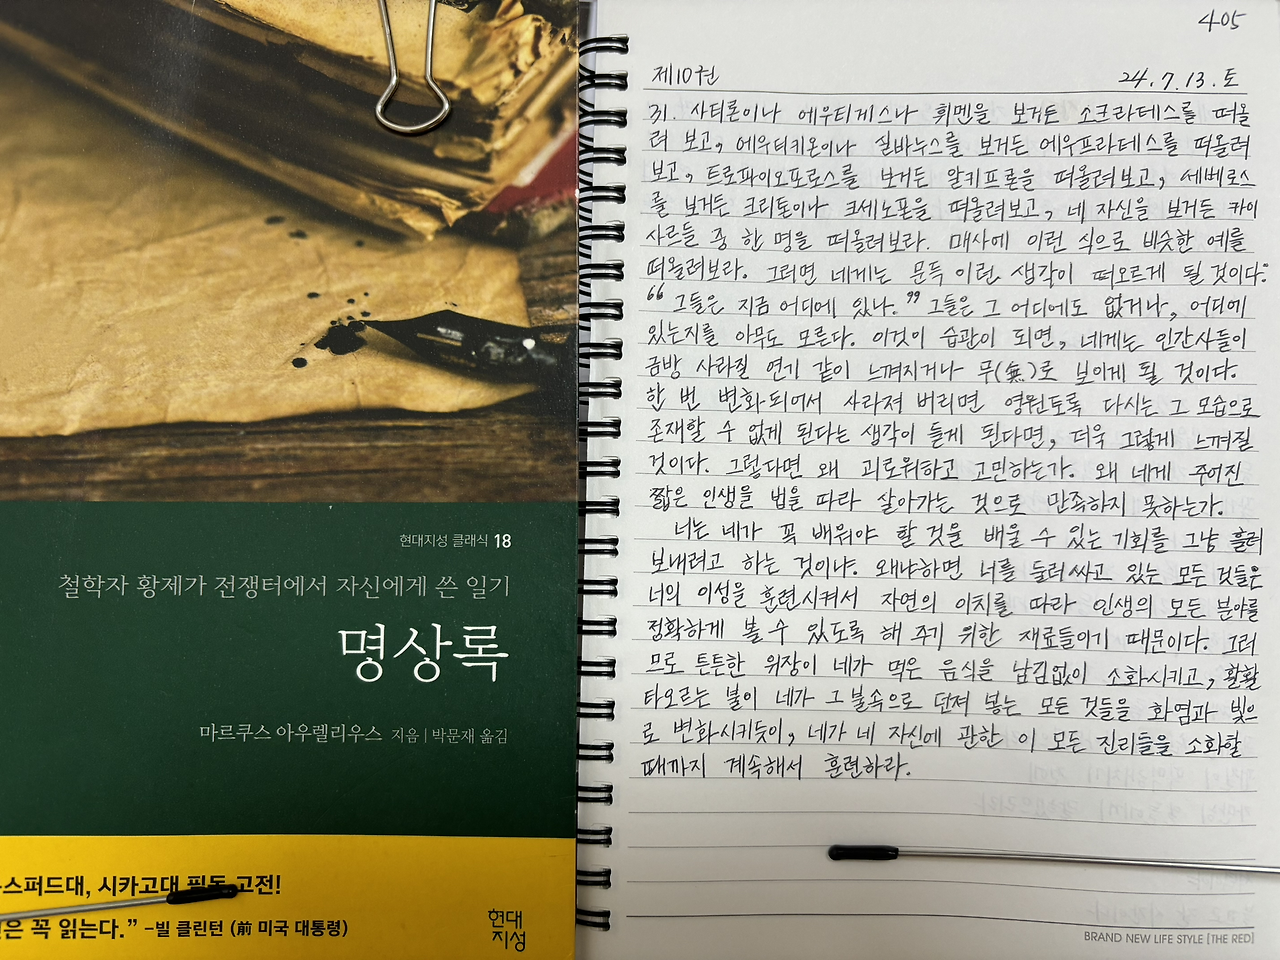 현대지성 클래식 18
철학자 황제가 전쟁터에서 자신에게 쓴 일기
명상록
마르쿠스 아우렐리우스 지음 | 박문재 옮김
스퍼드대, 시카고대 필독 고전!
은 꼭 읽는다.” –빌 클린턴 (前 미국 대통령)
현대
지성
405
제10권 24. 7. 13. 토
31. 사티론이나 에우티케스나 휘멘을 보거든 소크라테스를 떠올
려 보고, 에우티키온이나 실바누스를 보거든 에우프라테스를 떠올려
보고, 트로파이오포로스를 보거든 알키프론을 떠올려보고, 세베로스
를 보거든 크리톤이나 크세노폰을 떠올려보고, 네 자신을 보거든 카이
사르들 중 한 명을 떠올려보라. 매사에 이런 식으로 비슷한 예를
떠올려보라. 그러면 네게는 문득 이런 생각이 떠오르게 될 것이다:
“그들은 지금 어디에 있나.” 그들은 그 어디에도 없거나, 어디에
있는지를 아무도 모른다. 이것이 습관이 되면, 네게는 인간사들이
금방 사라질 연기 같이 느껴지거나 무(無)로 보이게 될 것이다.
한 번 변화되어서 사라져 버리면 영원토록 다시는 그 모습으로
존재할 수 없게 된다는 생각이 들게 된다면, 더욱 그렇게 느껴질
것이다. 그렇다면 왜 괴로워하고 고민하는가. 왜 네게 주어진
짧은 인생을 법을 따라 살아가는 것으로 만족하지 못하는가.
너는 네가 꼭 배워야 할 것을 배울 수 있는 기회를 그냥 흘려
보내려고 하는 것이냐. 왜냐하면 너를 둘러싸고 있는 모든 것들은
너의 이성을 훈련시켜서 자연의 이치를 따라 인생의 모든 분야를
정확하게 볼 수 있도록 해 주기 위한 재료들이기 때문이다. 그러
므로 튼튼한 위장이 네가 먹은 음식을 남김없이 소화시키고, 활활
타오르는 불이 네가 그 불속으로 던져 넣는 모든 것들을 화염과 빛으
로 변화시키듯이, 네가 네 자신에 관한 이 모든 진리들을 소화할
때까지 계속해서 훈련하라.
BRAND NEW LIFE STYLE [THE RED]